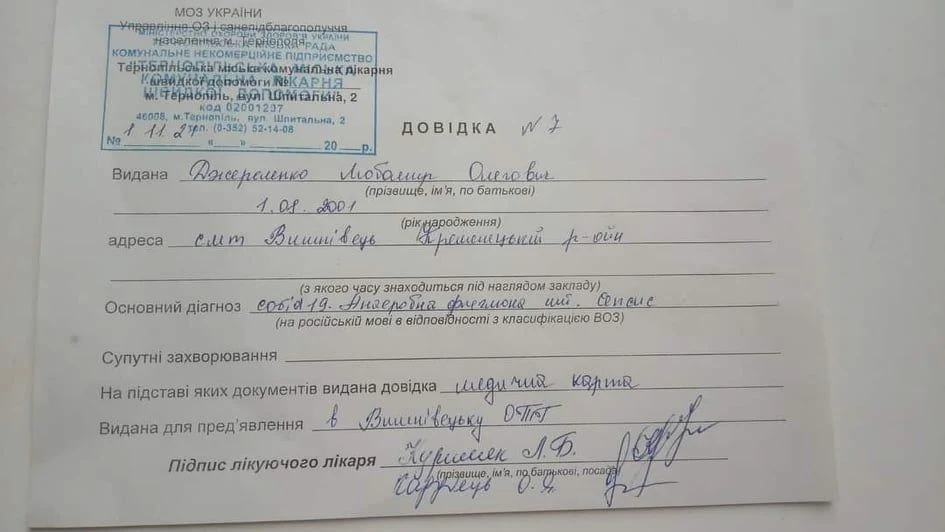 МОЗ УКРАЇНИ
Управління ОЗ і санепідблагополуччя
населення м. Тернополя
Тернопільська міська комунальна лікарня
швидкої допомоги №
м. Тернопіль, вул. Шпитальна, 2
МІНІСТЕРСТВО ОХОРОНИ ЗДОРОВ'Я УКРАЇНИ
МІСЬКА РАДА
КОМУНАЛЬНЕ НЕКОМЕРЦІЙНЕ ПІДПРИЄМСТВО
"ТЕРНОПІЛЬСЬКА МІСЬКА
КОМУНАЛЬНА ЛІКАРНЯ
ШВИДКОЇ ДОПОМОГИ"
код 02001207
46008, м.Тернопіль, вул. Шпитальна, 2
тел. (0-352) 52-14-08
№ 1 11 21 "__" 20 р.
ДОВІДКА №7
Видана Любомир Олегович
(прізвище, ім'я, по батькові)
2001
(рік народження)
адреса смт Вишнівець Кременецький р-
(з якого часу знаходиться під наглядом закладу)
Основний діагноз covid 19. Анаеробна флегмона Сепсис
(на російській мові в відповідності з класифікацією ВОЗ)
Супутні захворювання
На підставі яких документів видана довідка медична карта
Видана для пред'явлення в Вишнівецьку ОТГ
Підпис лікуючого лікаря Л.Б.
(прізвище, ім'я, по батькові, посада)